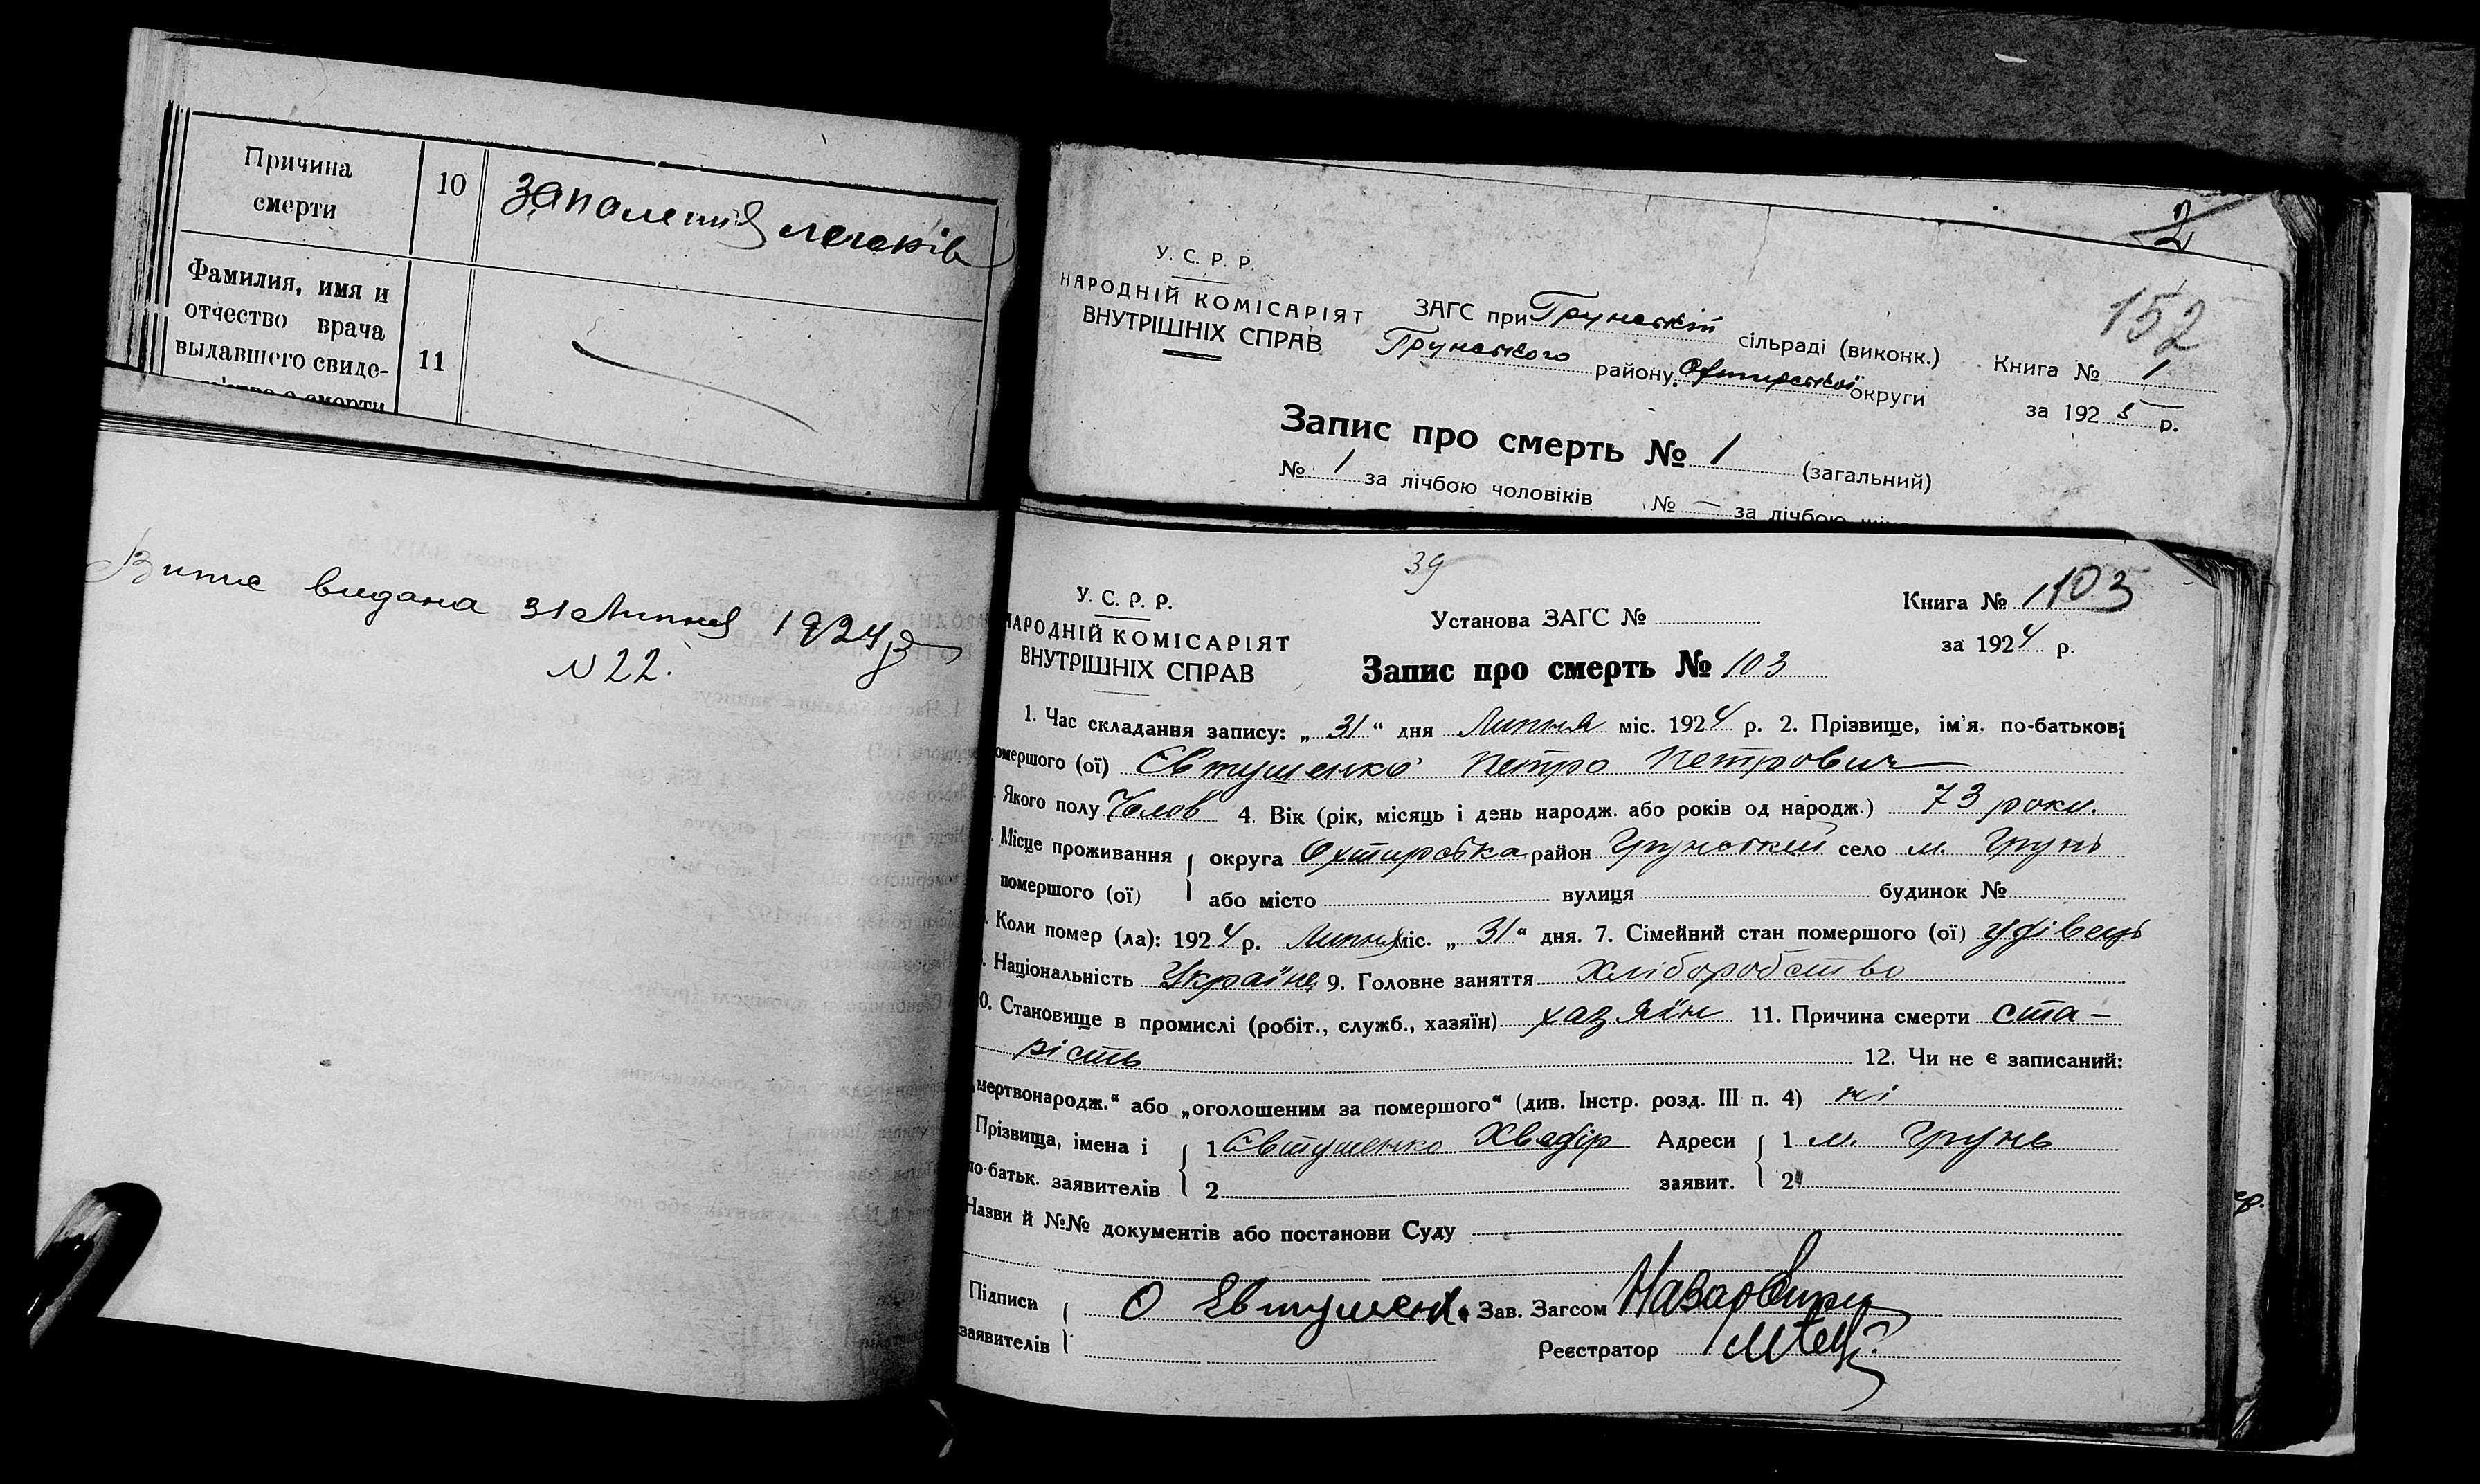 Причина
смерти
10
запаления легенів
Фамилия, имя и
отчество врача
выдавшего свиде-
11
Випис видана 31 Липня 1924 р
N 22.
2
152
У. С. Р. Р.
НАРОДНІЙ КОМІСАРІЯТ
ВНУТРІШНІХ СПРАВ
ЗАГС при Грунській сільраді (виконк.)
Грунського району Охтирської округи
Книга № 1
за 1925 р.
Запис про смерть № 1 (загальний)
№ 1 за лічбою чоловіків № — за лічбою
39
У. С. Р. Р.
НАРОДНІЙ КОМІСАРІЯТ
ВНУТРІШНІХ СПРАВ
Установа ЗАГС №
Книга № 1 103
за 1924 р.
Запис про смерть № 103
1. Час складання запису: „ 31 “ дня Липня міс. 1924 р. 2. Прізвище, ім'я, по-батькові
омершого (ої) Євтушенко Петро Петрович
. Якого полу Чолов 4. Вік (рік, місяць і день народж. або років од народж.) 73 роки.
. Місце проживання округа Охтирська район Грунський село м. Грунь
помершого (ої) або місто вулиця будинок №
. Коли помер (ла): 1924 р. Липня міс. „ 31 “ дня. 7. Сімейний стан помершого (ої) удівець
. Національність Україне 9. Головне заняття Хліборобство
0. Становище в промислі (робіт., служб., хазяїн) хазяїн 11. Причина смерти ста-
рість 12. Чи не є записаний:
„мертвонародж.“ або „оголошеним за помершого“ (див. Інстр. розд. III п. 4) ні
Прізвища, імена і 1 Євтушенко Хведір Адреси 1 м. Грунь
по-батьк. заявителів 2 заявит. 2
Назви й №№ документів або постанови Суду
Підписи О Евтушенк. Зав. Загсом
заявителів Реєстратор
р.